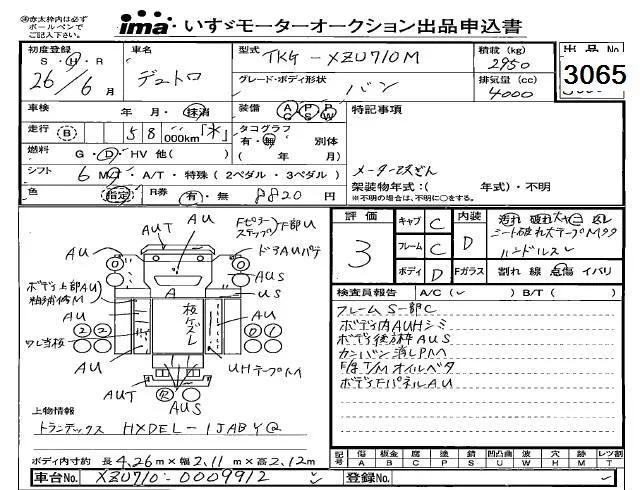 ㊟赤太枠内は必ず
ボールペンで
ご記入下さい。
ima いすゞモーターオークション出品申込書
初度登録
S・H・R
26年6月
車名
デュトロ
型式
TKG-XZU710M
グレード・ボディ形状
バン
積載(kg)
2950
排気量(cc)
4000
出品No.
3065
車検 年 月・抹消
装備 AC PS PW
特記事項
走行 B 58,000km「*」
タコグラフ
有・無 別体
( 年 月)
燃料 G・D・HV 他( )
シフト 6 M・A/T・特殊(2ペダル・3ペダル)
メーター
架装物年式:( 年式)・不明
※不明の場合は、不明に○をする。
色 指定 R券 有・無 8820円
評価
3
キャブ C
フレーム C
ボディ D
内装 D
汚れ 破れ
シート破れ大テープ
ハンドルスレ
Fガラス 割れ 線 点傷 イバリ
Fピラー
ステップ 下部U
AU
AUT
AU
ドアAUパテ
AU
AUS
ボディ上部AU
補修M
A
US
AU
板ケズレ
ワレ当板
AU
UHテープ
AUT
R
AUS
検査員報告 A/C( ✓ ) B/T( )
フレームS一部C
ボディ内AUHシミ
ボディ後方枠AUS
カンバン消しPM
F廻T/Mオイルベタ
ボディFパネルAU
上物情報
トランテックス HXDEL-1JABYQ
ボディ内寸約 長4.26m×幅2.11m×高2.12m
記号 傷A 板金B 腐C 塗P 錆S 凹凸曲U 波W 穴H 跡M レツ割T
車台No. XZU710-0009912
登録No.